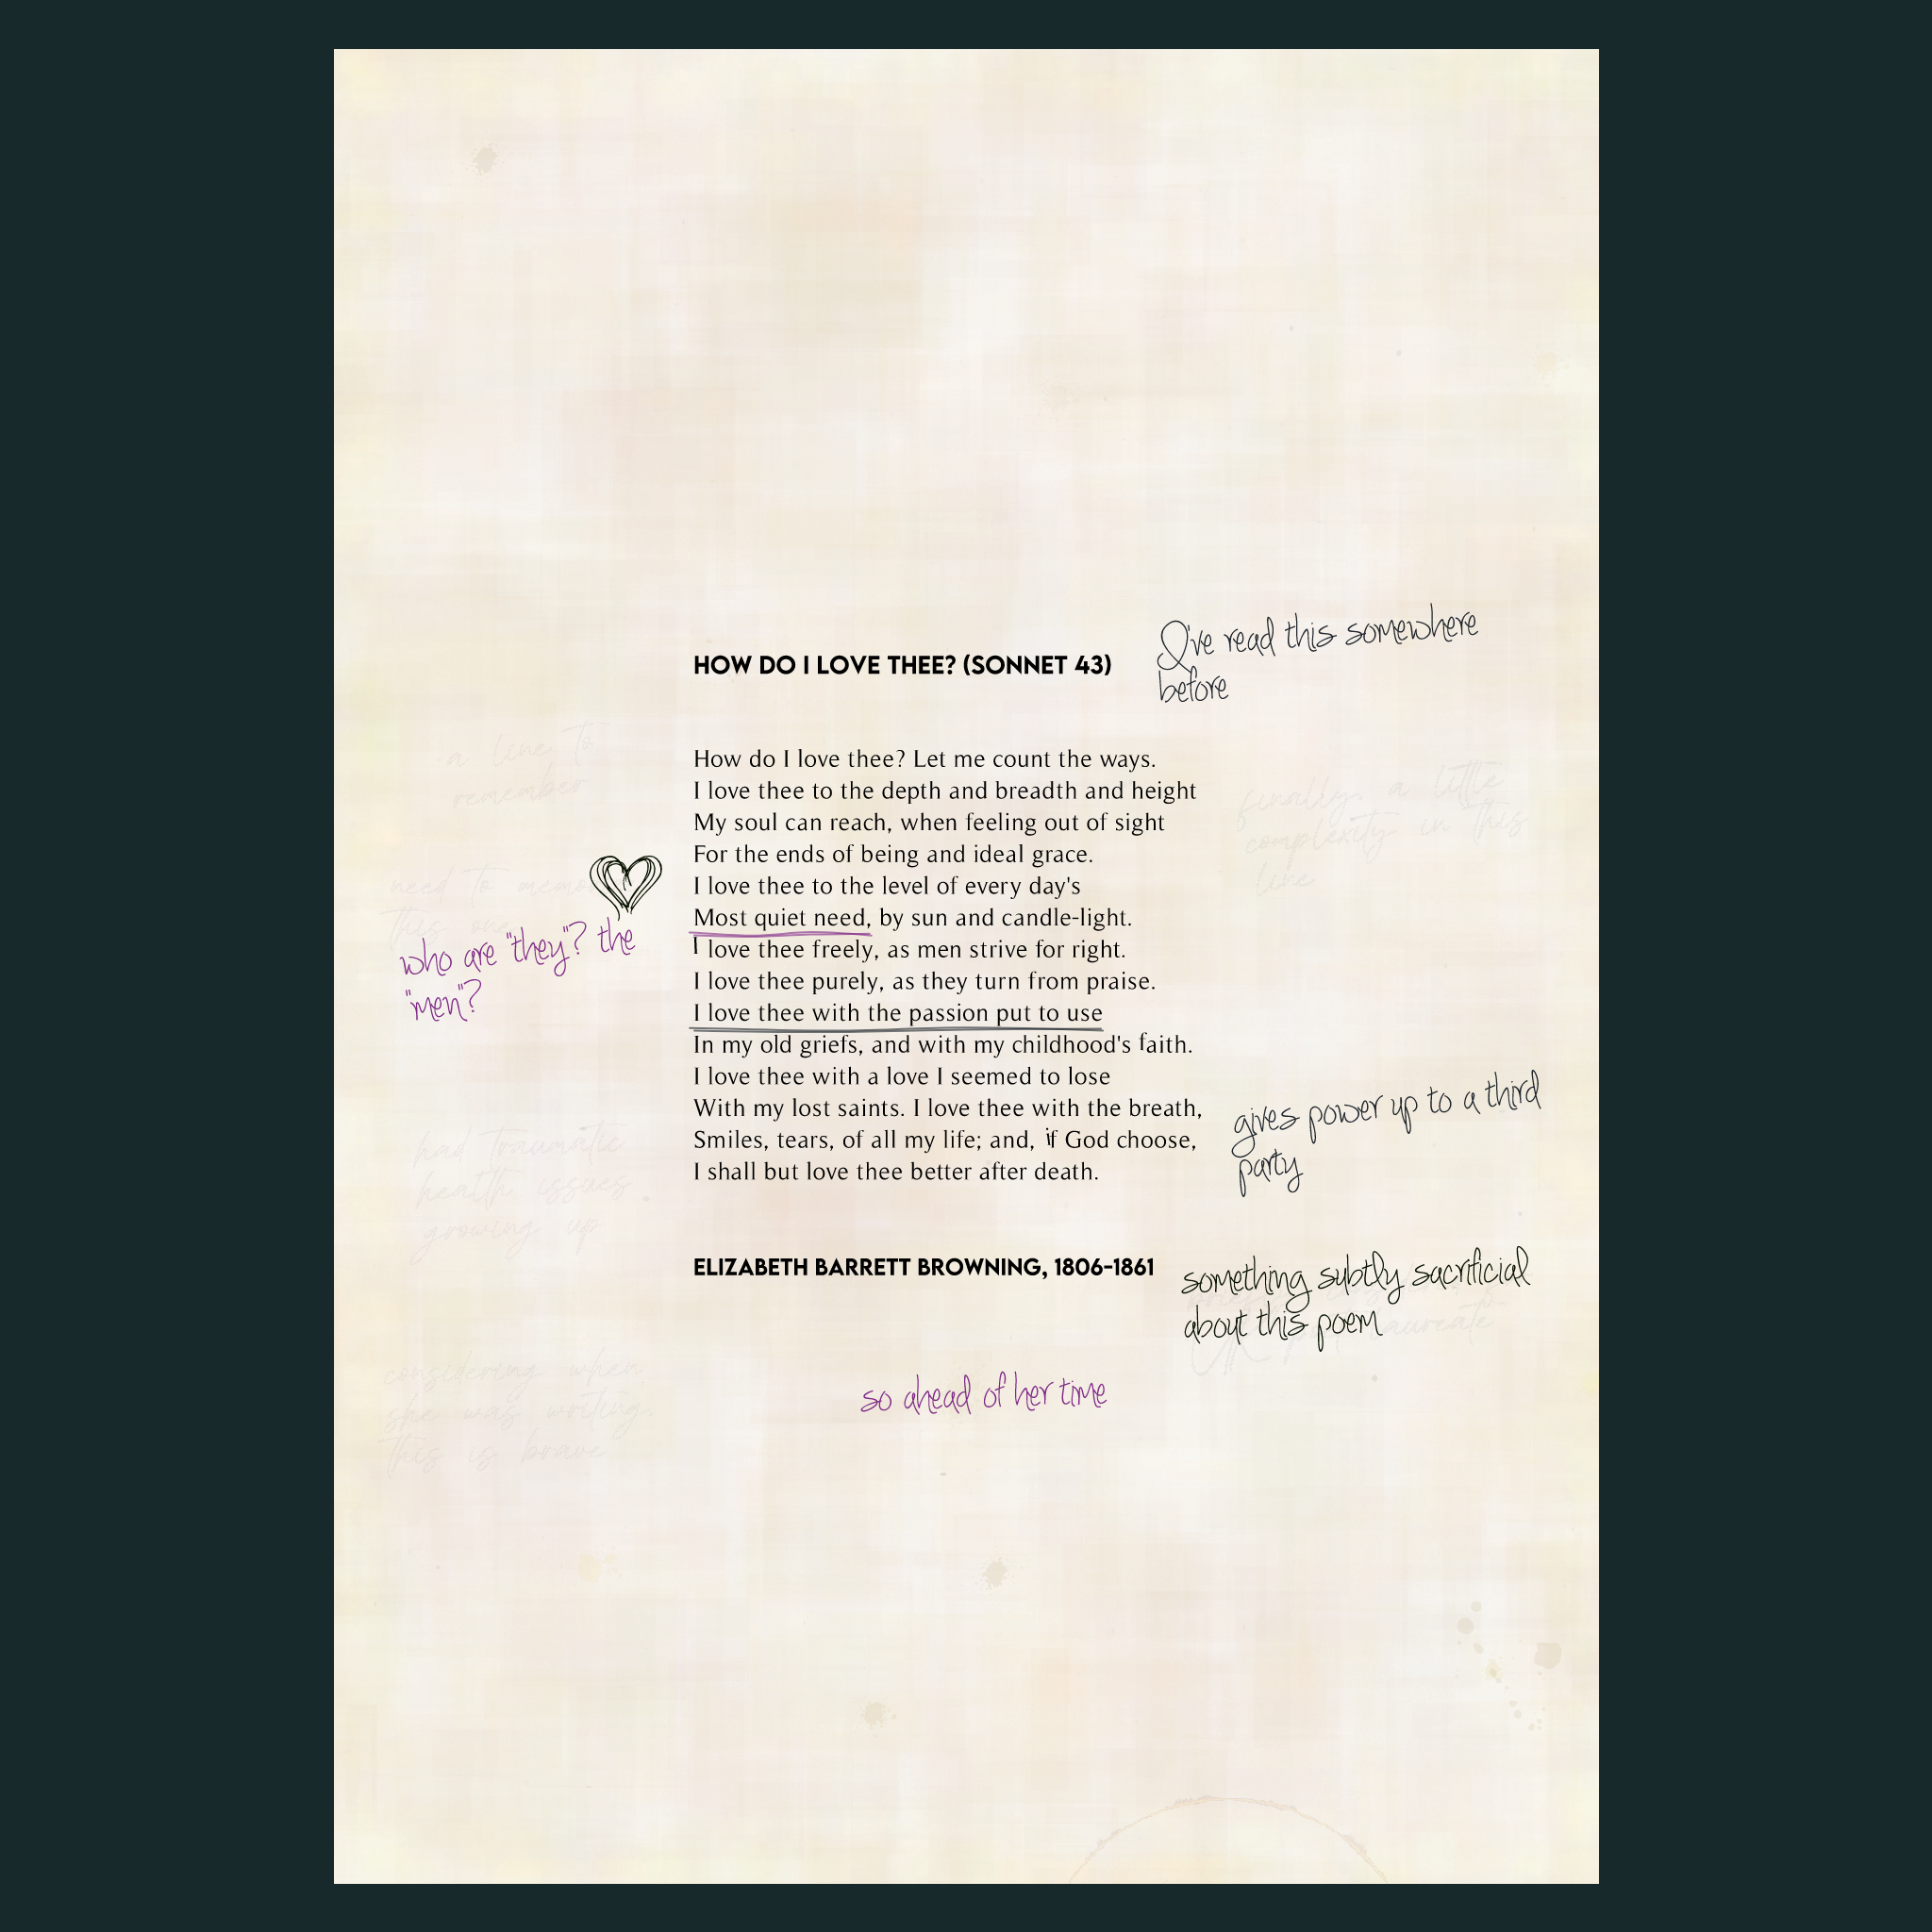 I've read this somewhere
before
HOW DO I LOVE THEE? (SONNET 43)
a line to
remember
How do I love thee? Let me count the ways.
I love thee to the depth and breadth and height
My soul can reach, when feeling out of sight
For the ends of being and ideal grace.
I love thee to the level of every day's
Most quiet need, by sun and candle-light.
I love thee freely, as men strive for right.
I love thee purely, as they turn from praise.
I love thee with the passion put to use
In my old griefs, and with my childhood's faith.
I love thee with a love I seemed to lose
With my lost saints. I love thee with the breath,
Smiles, tears, of all my life; and, if God choose,
I shall but love thee better after death.
finally, a little
complexity in this
line
need to
this one
who are "they"? the
"men"?
gives power up to a third
party
had traumatic
health issues
growing up
ELIZABETH BARRETT BROWNING, 1806-1861
something subtly sacrificial
about this poem
laureate
considering when
she was writing,
this is brave
so ahead of her time